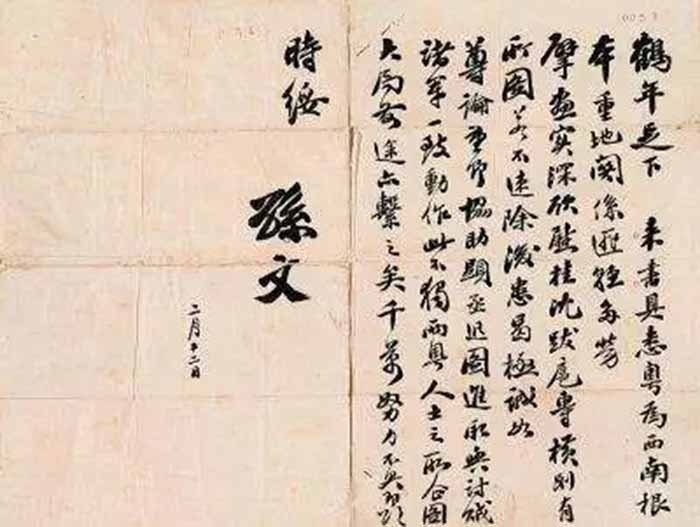 鶴年足下 来書具悉粤為西南根
本重地関係匪輕多勞
擘画実深欣慰桂沈跋扈專橫別有
所圖若不速除滋患曷極誠如
尊論重予協助顕丞迅圖進取與討賊
諸軍一致動作此不獨兩粤人士之所企圖
大局前途亦繫之矣千萬努力不具即頌
時綏
孫文
二月十二日